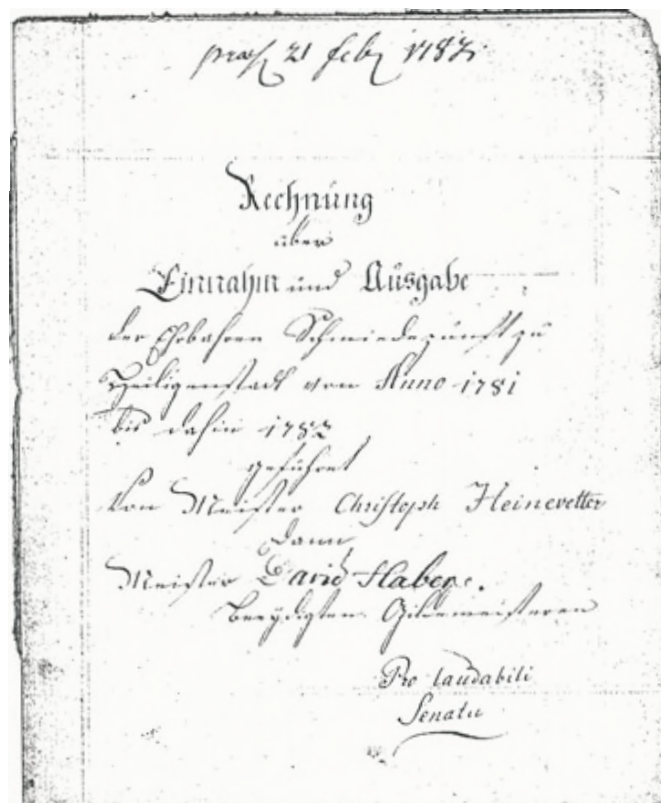 praes 21 feb 1782
Rechnung
über
Einnahm und Ausgabe
der Ehrbahren Schmiedezunft zu
Heiligenstadt von Anno 1781
bis dahin 1782
geführet
Von Meister Christoph Heinevetter
dann
Meister David Habene.
beeydigten Gildemeisteren
Pro laudabili
Senatu